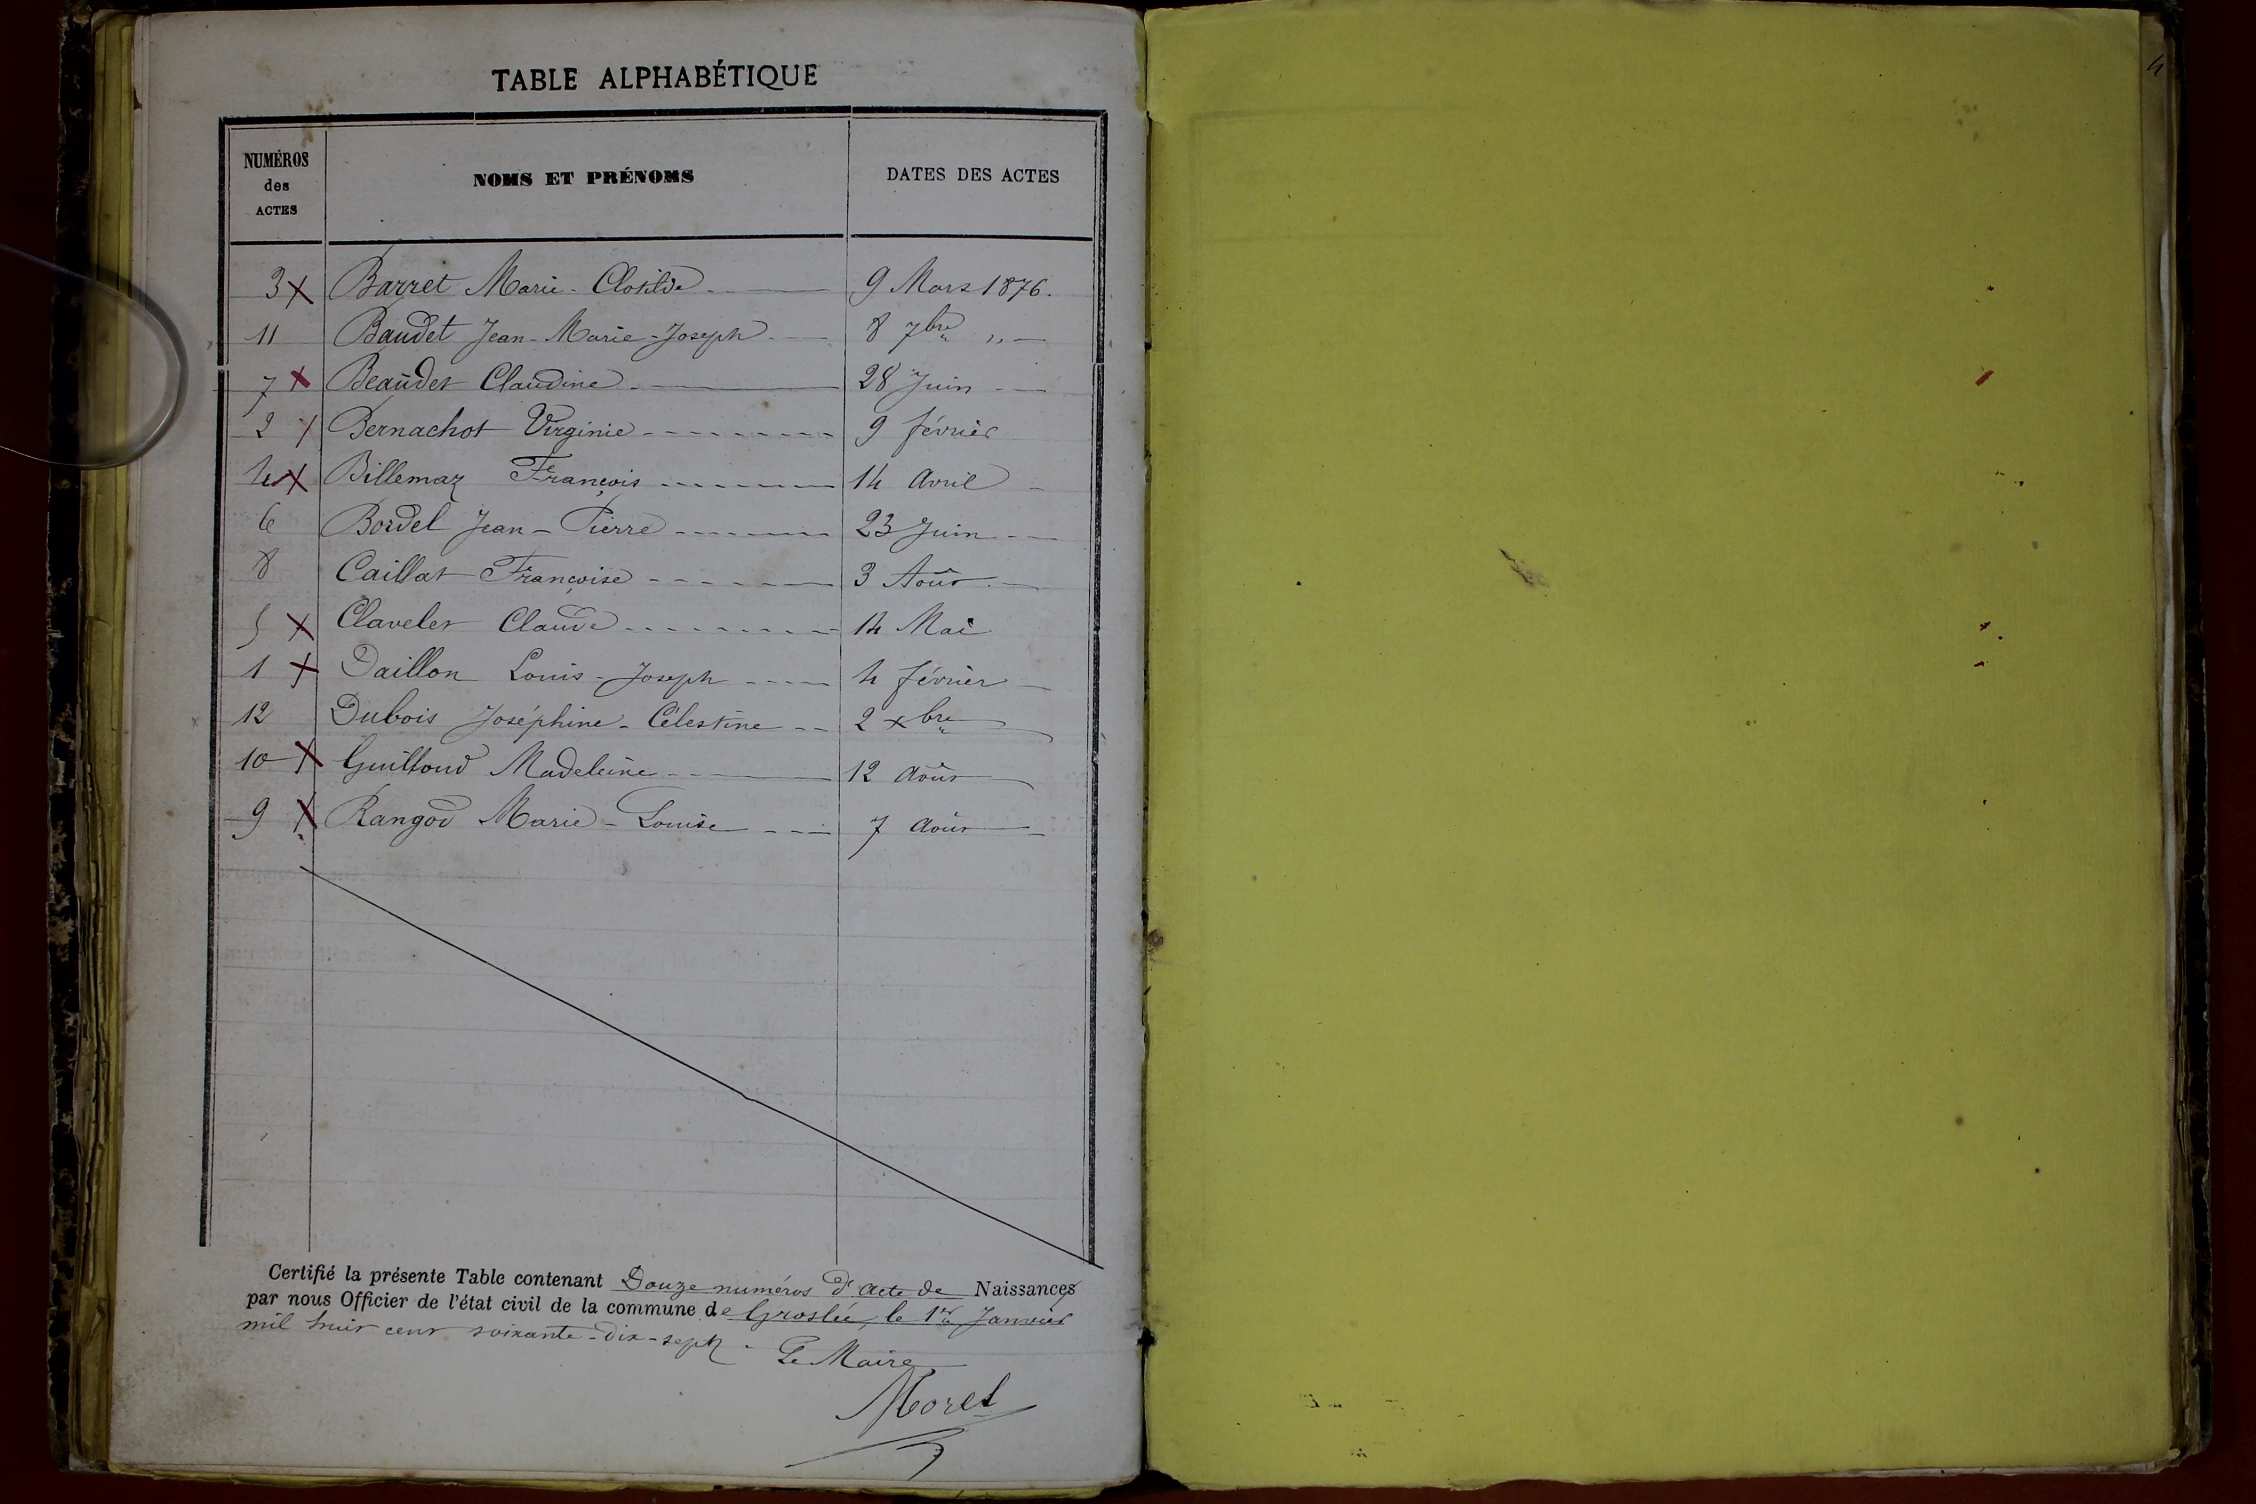 TABLE ALPHABÉTIQUE
NUMÉROS des ACTES NOMS ET PRÉNOMS DATES DES ACTES
3 X Barret Marie-Clotilde 9 Mars 1876.
11 Baudet Jean-Marie-Joseph 8 7bre "
7 X Beaudet Claudine 28 Juin
2 X Bernachot Virginie 9 février
4 X Billemaz François 14 avril
6 Bordel Jean-Pierre 23 Juin
8 Caillat Françoise 3 Août
5 X Clavelet Claude 14 Mai
1 X Daillon Louis-Joseph 4 février
12 Dubois Joséphine-Célestine 2 xbre
10 X Guilloud Madeleine 12 août
9 X Rangod Marie-Louise 7 août
Certifié la présente Table contenant Douze numéros d'acte de Naissances
par nous Officier de l'état civil de la commune de Groslée, le 1er Janvier
mil huit cent soixante-dix-sept.
Le Maire
Morel
4